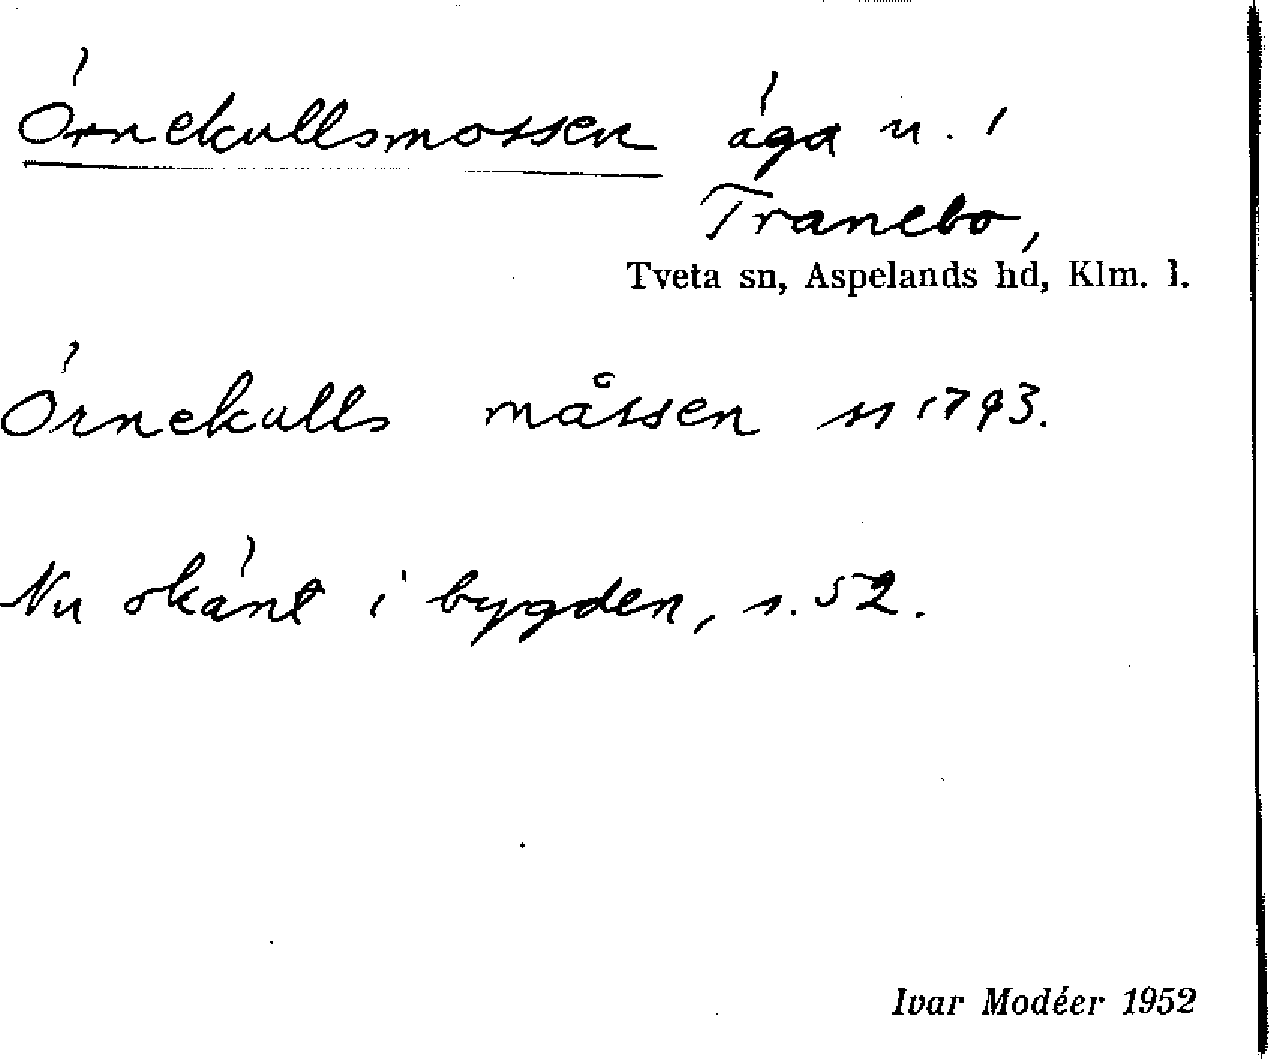 Örnekullsmossen äga u. 1
Tranebo,
Tveta sn, Aspelands hd, Klm. l.
Örnekulls måssen 1793.
Nu okänt i bygden, s. 52.
Ivar Modéer 1952